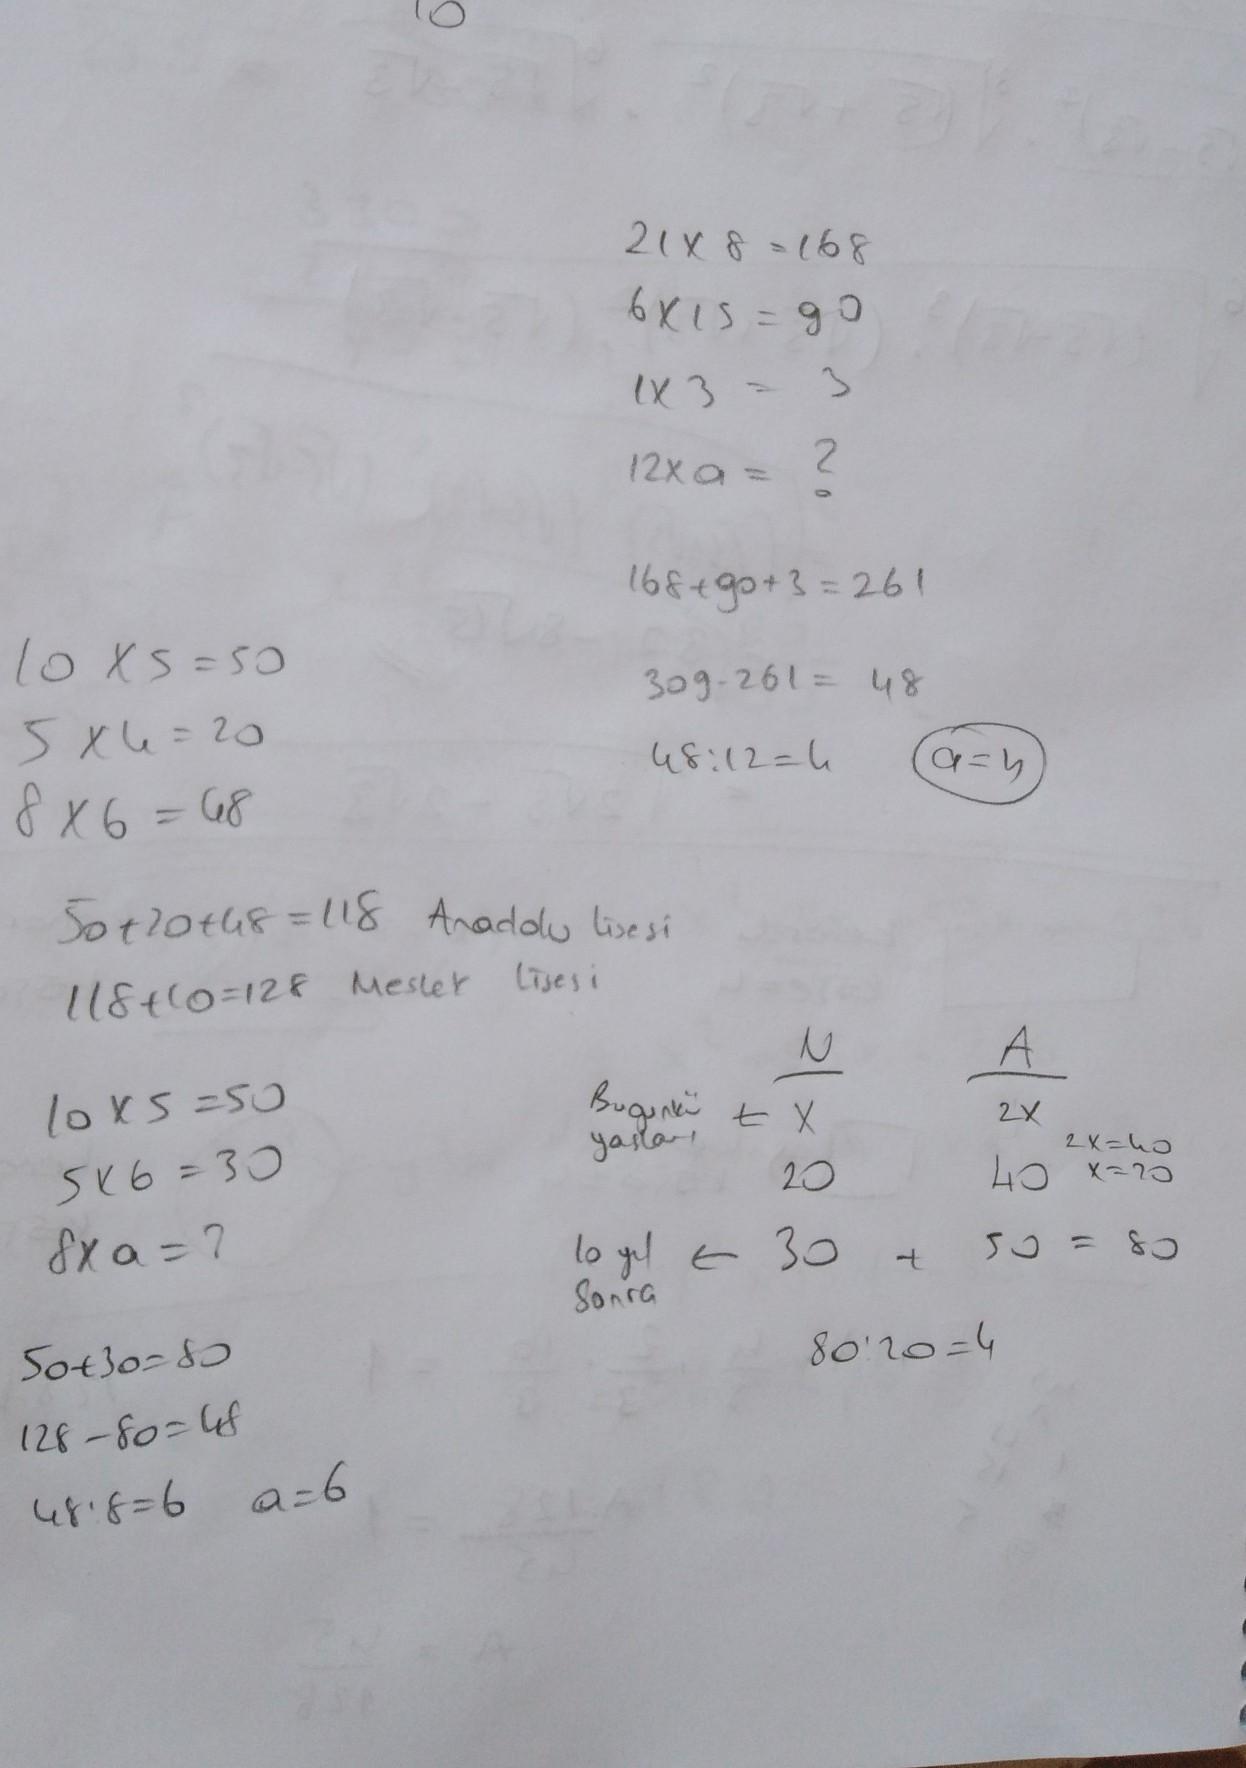 10
21 x 8 = 168
6 x 15 = 90
1 x 3 = 3
12 x a = ?
168+90+3=261
309-261= 48
48:12=4 a=4
10 x 5 = 50
5 x 4 = 20
8 x 6 = 48
50+20+48=118 Anadolu lisesi
118+10=128 Meslek lisesi
10 x 5 = 50
5 x 6 = 30
8 x a = ?
50+30=80
128-80=48
48:8=6 a=6
N A
Bugünkü yaşları ← x 2x
2x=40
20 40 x=20
10 yıl sonra ← 30 + 50 = 80
80:20=4